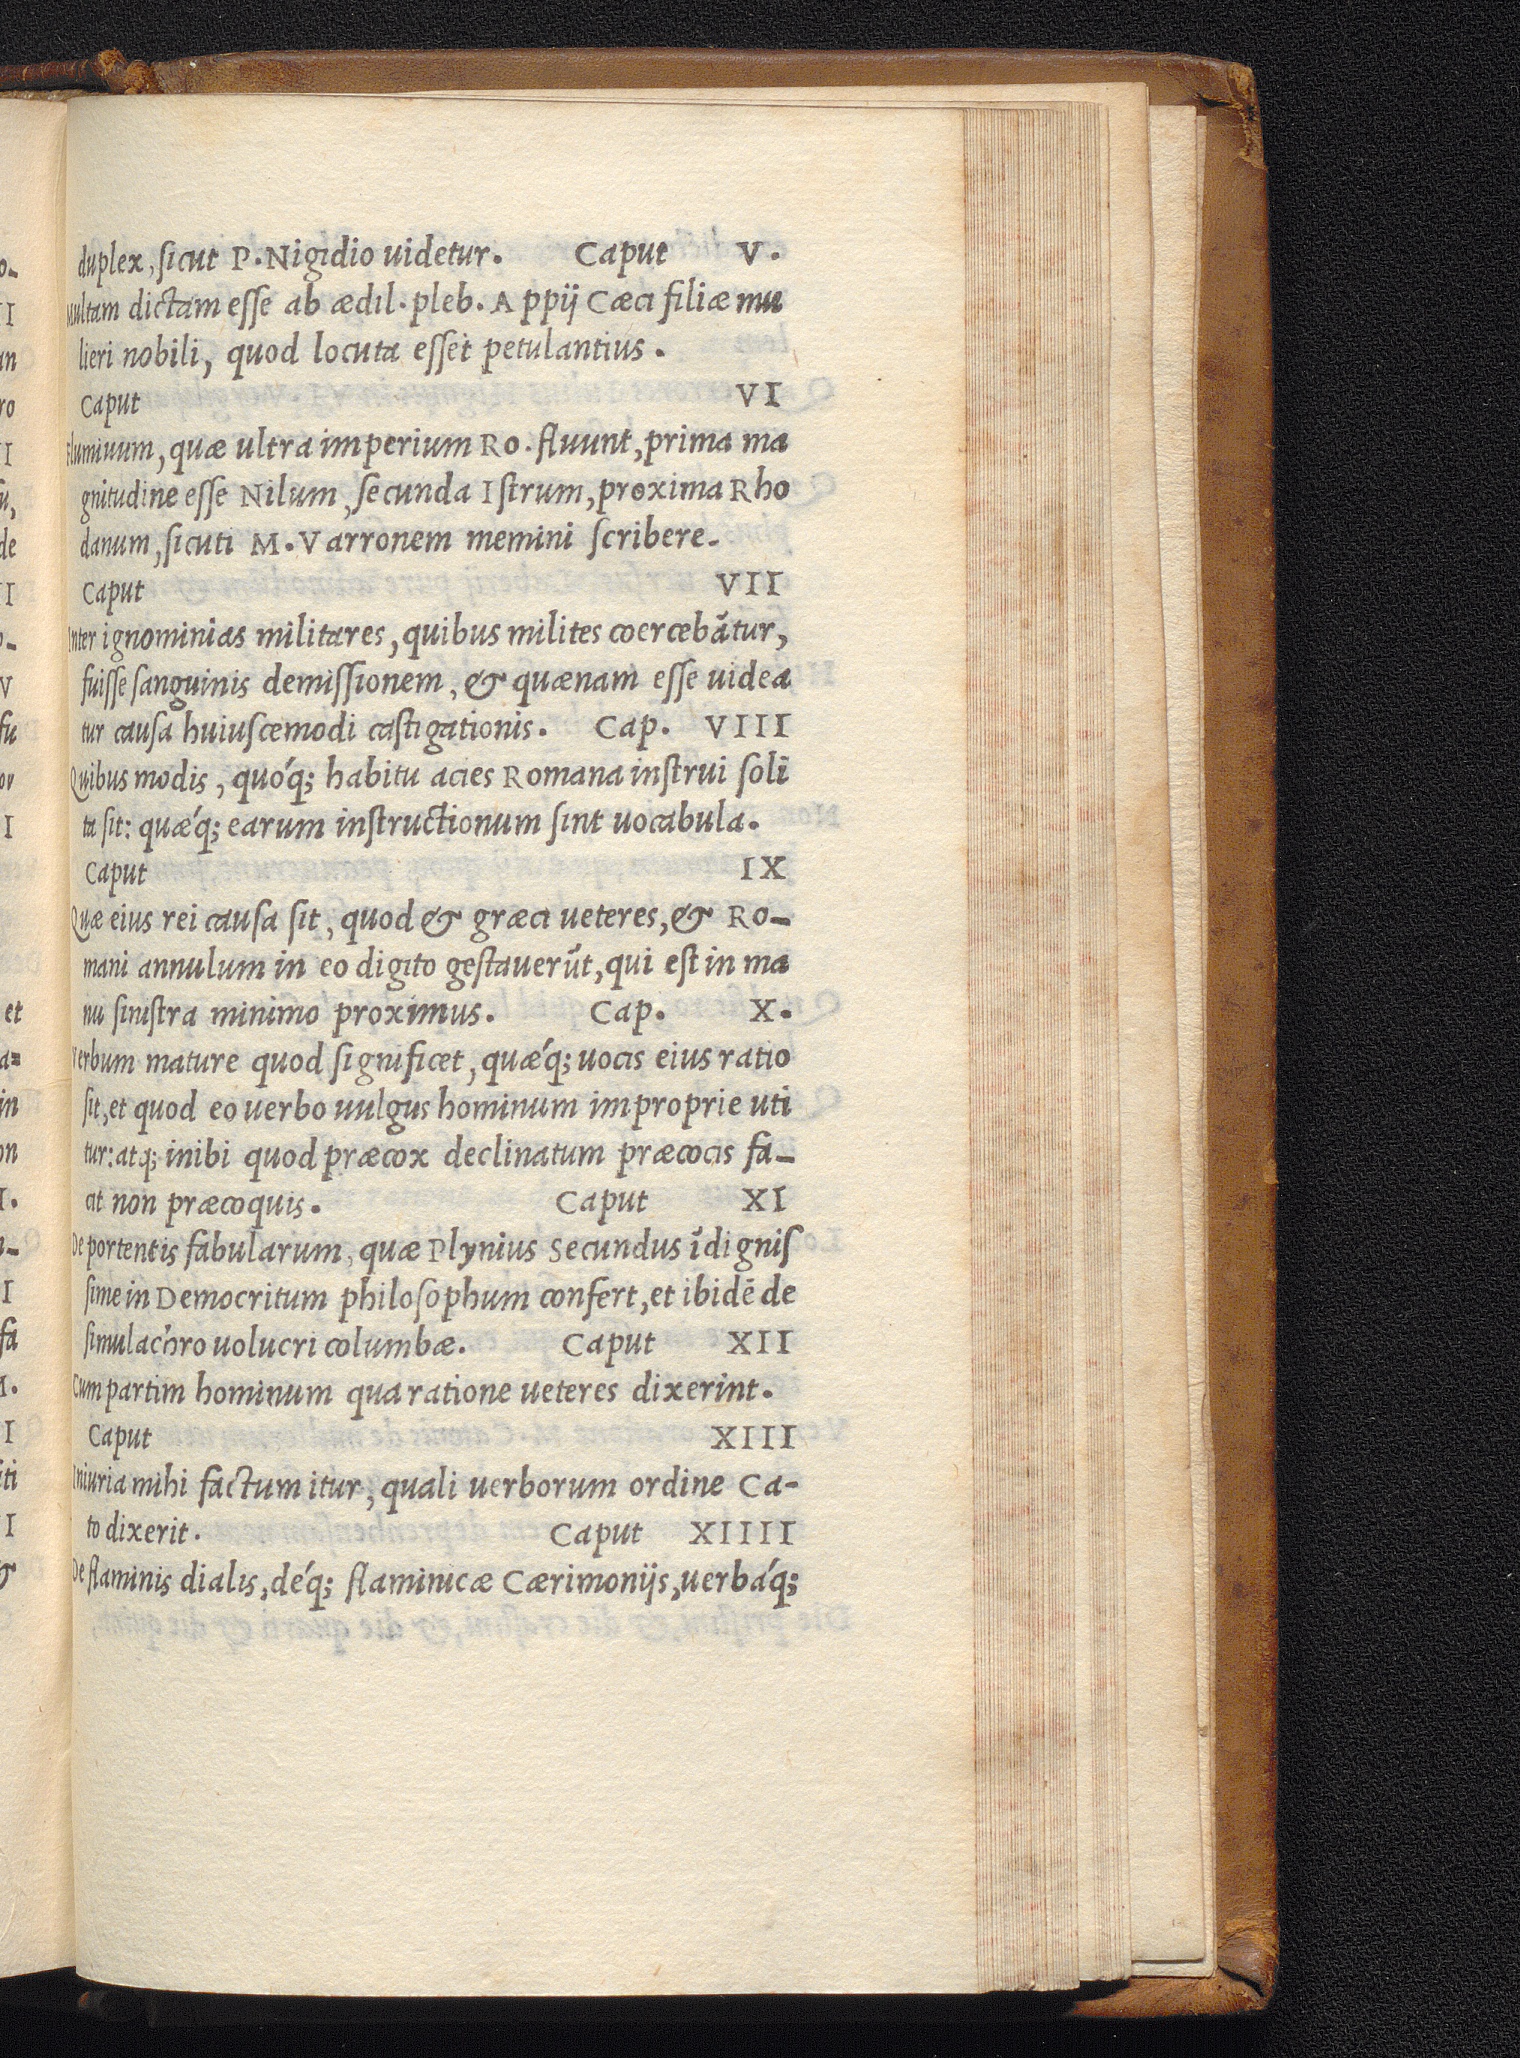 duplex, sicut P. Nigidio uidetur. Caput V.
Multam dictam esse ab ædil. pleb. Appij Cæci filiæ mu
lieri nobili, quod locuta esset petulantius.
Caput VI
Fluminum, quæ ultra imperium Ro. fluunt, prima ma
gnitudine esse Nilum, secunda Istrum, proxima Rho
danum, sicuti M. Varronem memini scribere.
Caput VII
Inter ignominias militares, quibus milites coercebãtur,
fuisse sanguinis demissionem, & quænam esse uidea
tur causa huiuscemodi castigationis. Cap. VIII
Quibus modis, quóq; habitu acies Romana instrui soli
ta sit: quǽq; earum instructionum sint uocabula.
Caput IX
Quæ eius rei causa sit, quod & græci ueteres, & Ro-
mani annulum in eo digito gestauerũt, qui est in ma
nu sinistra minimo proximus. Cap. X.
Verbum mature quod significet, quǽq; uocis eius ratio
sit, et quod eo uerbo uulgus hominum improprie uti
tur: atq; inibi quod præcox declinatum præcocis fa-
cit non præcoquis. Caput XI
De portentis fabularum, quæ Plynius Secundus ĩdignis
sime in Democritum philosophum confert, et ibidẽ de
simulachro uolucri columbæ. Caput XII
Cum partim hominum qua ratione ueteres dixerint.
Caput XIII
Iniuria mihi factum itur, quali uerborum ordine Ca-
to dixerit. Caput XIIII
De flaminis dialis, déq; flaminicæ Cærimonijs, uerbáq;